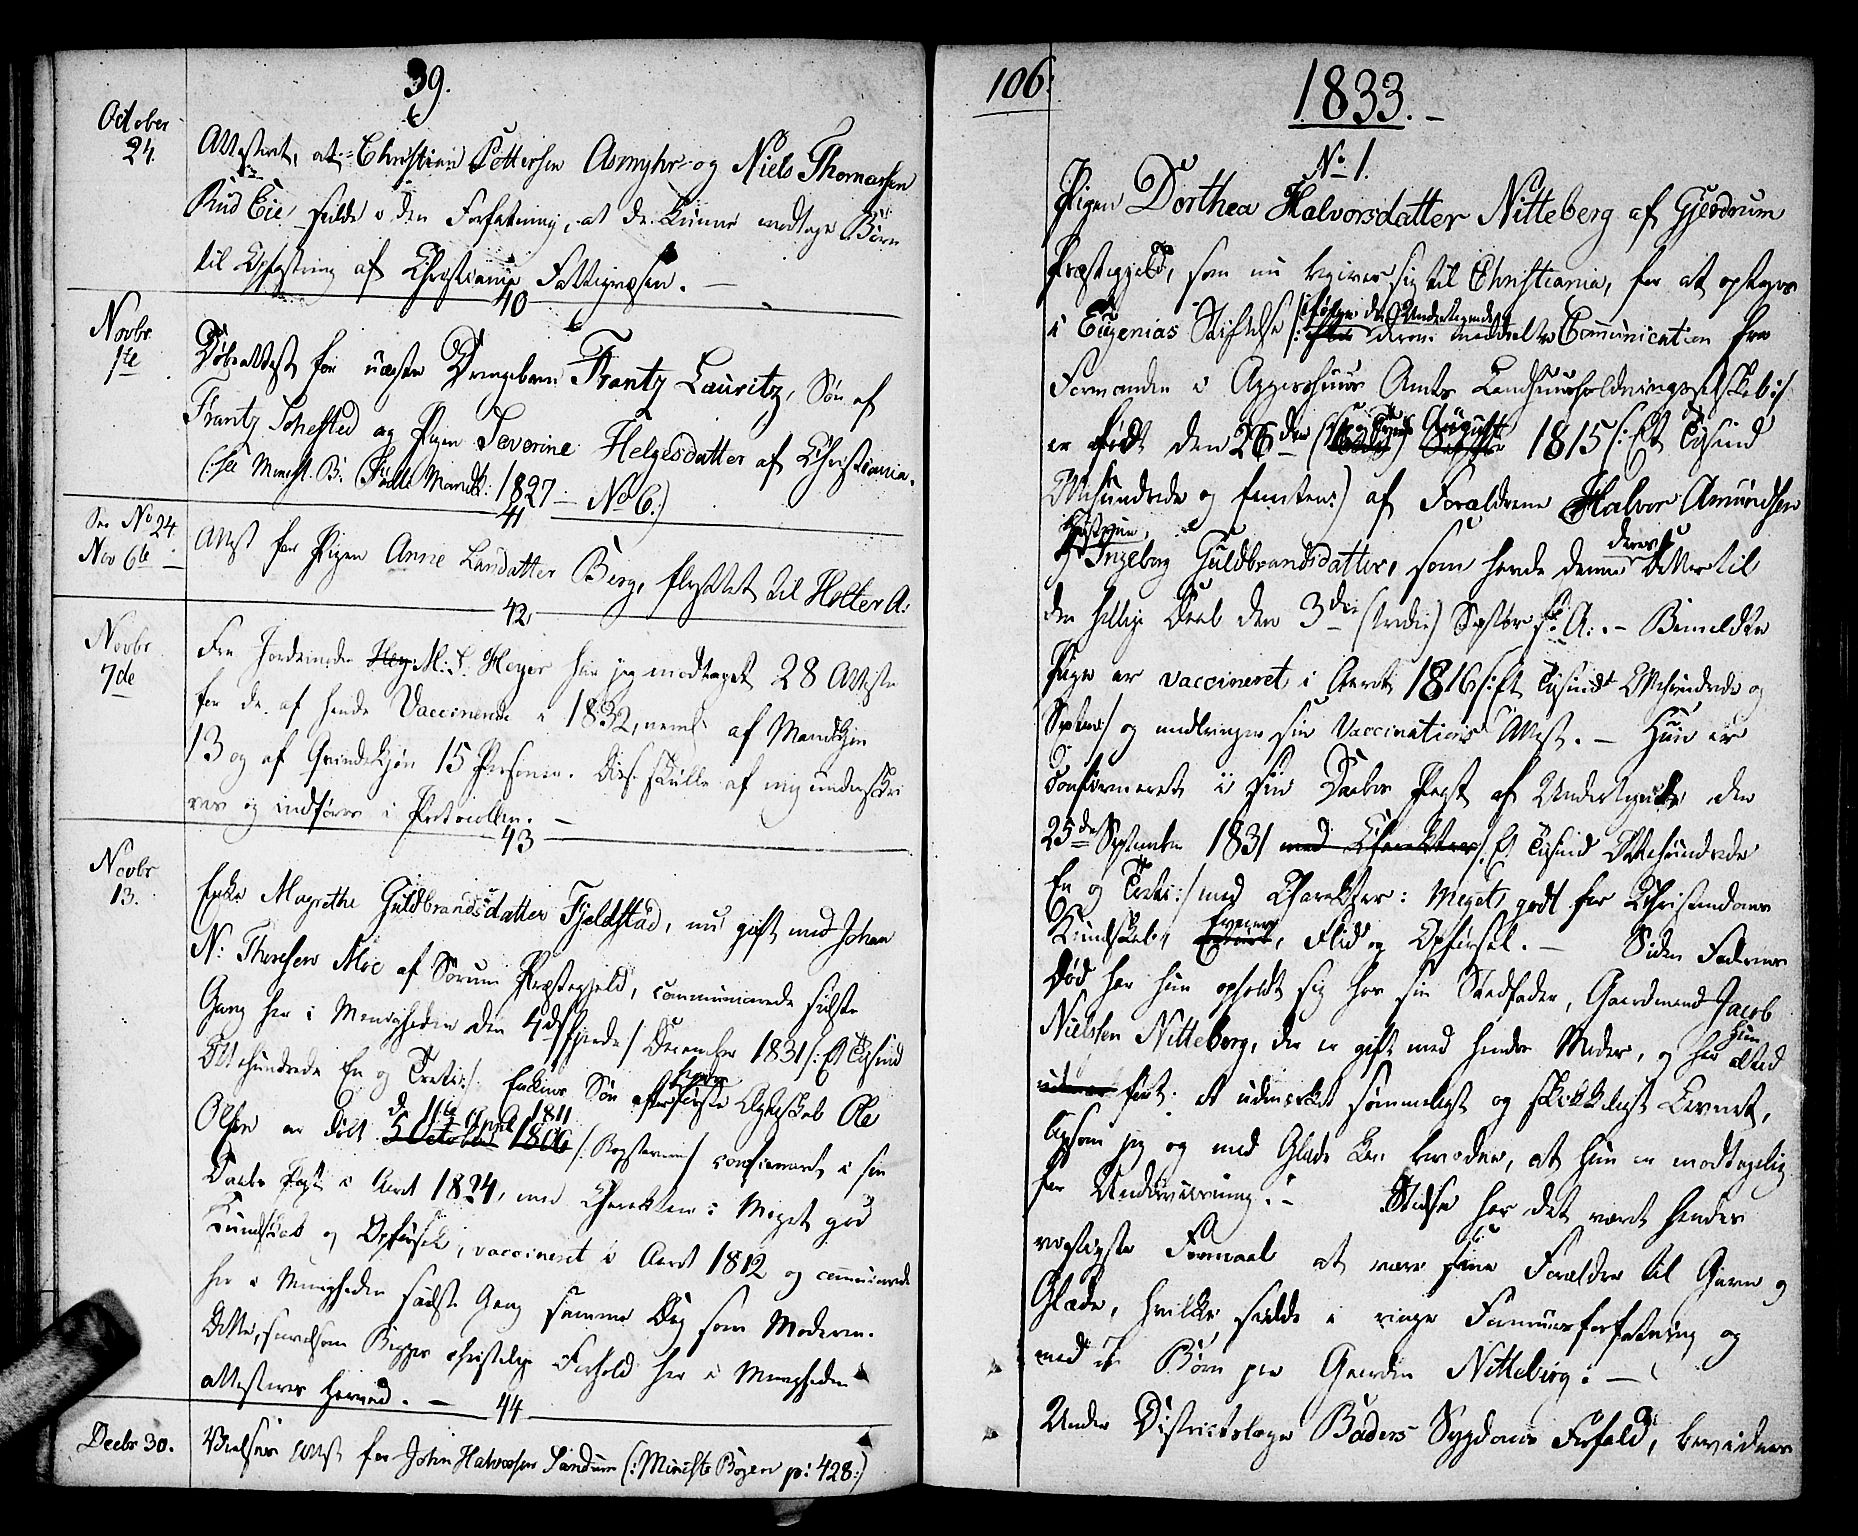 39.
October
24.
Attesteret, at Christian Pettersen Asmyhr og Niels Thomassen
Rud Eie, i den Forfatning, at de kunne modtage Børn
til Opfostring af Christiania Fattigvæsen. —
40
Novbr
1te
Døbeattest for uægte Drengebarn Frantz Lauritz, Søn af
Frantz og Pigen Severine Helgesdatter af Christiania.
(:see Minist. B. 1827 — No 6:)
41
See No 24
Nov 6te
Attest for Pigen Anne Larsdatter Berg, flyttet til Holter A:
42
Novbr
7de
Fra Jordemoder M: L. Heyer har jeg modtaget 28 Atteste
for de af hende Vaccinerede i 1832, neml: af Mandkjøn
13 og af Qvindekjøn 15 Personer. Disse skulle af mig underskri
ves og indføres i Protocollen. —
43
Novbr
13.
Enke Magrethe Guldbrandsdatter Fjeldstad, nu gift med Johan
N: Thoresen Moe af Sørum Præstegjeld, communicerede sidste
Gang her i Menigheden den 4de /fjerde/ December 1831 /: Et Tusind
Ottehundrede En og Treti:/. Enkens Søn af første Ægteskab Ole
Olsen er født d. 11te April 1811
5 October 1806 confirmeret i sin
Daabs Pagt i Aaret 1824, med Charakter: Meget god
Kundskab og Opførsel, vaccineret i Aaret 1812 og communicerede
her i Menigheden sidste Gang samme Dag som Moderen.
Dette, saavelsom Begges christelige Forhold her i Menigheden
attesteres herved. —
44
Decbr 30.
Vielses Attest for John Halvorsen Sandum (: Ministr Bogen p: 428:)
106:
1833. —
No 1.
Pigen Dorthea Halvorsdatter Nitteberg af Gjerdrum
Præstegjeld, som nu begiver sig til Christiania, for at optages
i Eugenias Stiftelse /: ifølge den Undertegnede
derom meddeelte Communication fra
Formanden i Aggershuus Amts Landhuusholdningsselskab :/
er født den 26de August 1815 /: Et Tusind
Ottehundrede og femten:) af Forældrene Halvor Amundsen
og Hustrue, Ingeborg Guldbrandsdatter, som havde denne deres Datter til
den hellige Daab den 3die (tredie) Septbr s: A: — Bemeldte
Pige er vaccineret i Aaret 1816 /: Et Tusind Ottehundrede og
Sexten:/ og medbringer sin Vaccinations Attest. — Hun er
confirmeret i sin Daabes Pagt af Undertegnede den
25de September 1831 med Charakter /: Et Tusind Ottehundrede
En og Treti:/ med Charakter: Meget godt for Christendoms
Kundskab, Evener, Flid og Opførsel. — Siden Faderens
Død har hun opholdt sig hos sin Stedfader, Gaardmand Jacob
Nielsen Nitteberg, der er gift med hendes Moder, og har Hun altid
ført et udmærket sømmeligt og skikkeligt Levnet,
ligesom jeg og med Glæde kan bevidne, at hun er modtagelig
for Underviisning. — Stedse har det været hendes
vigtigste Formaal at være sine Forældre til Gavn og
Glæde, hvilke sidde i ringe Formuesforfatning og
med Børn paa Gaarden Nitteberg. —
Under Districtslæge Baders Sygdoms Forfald, bevidner